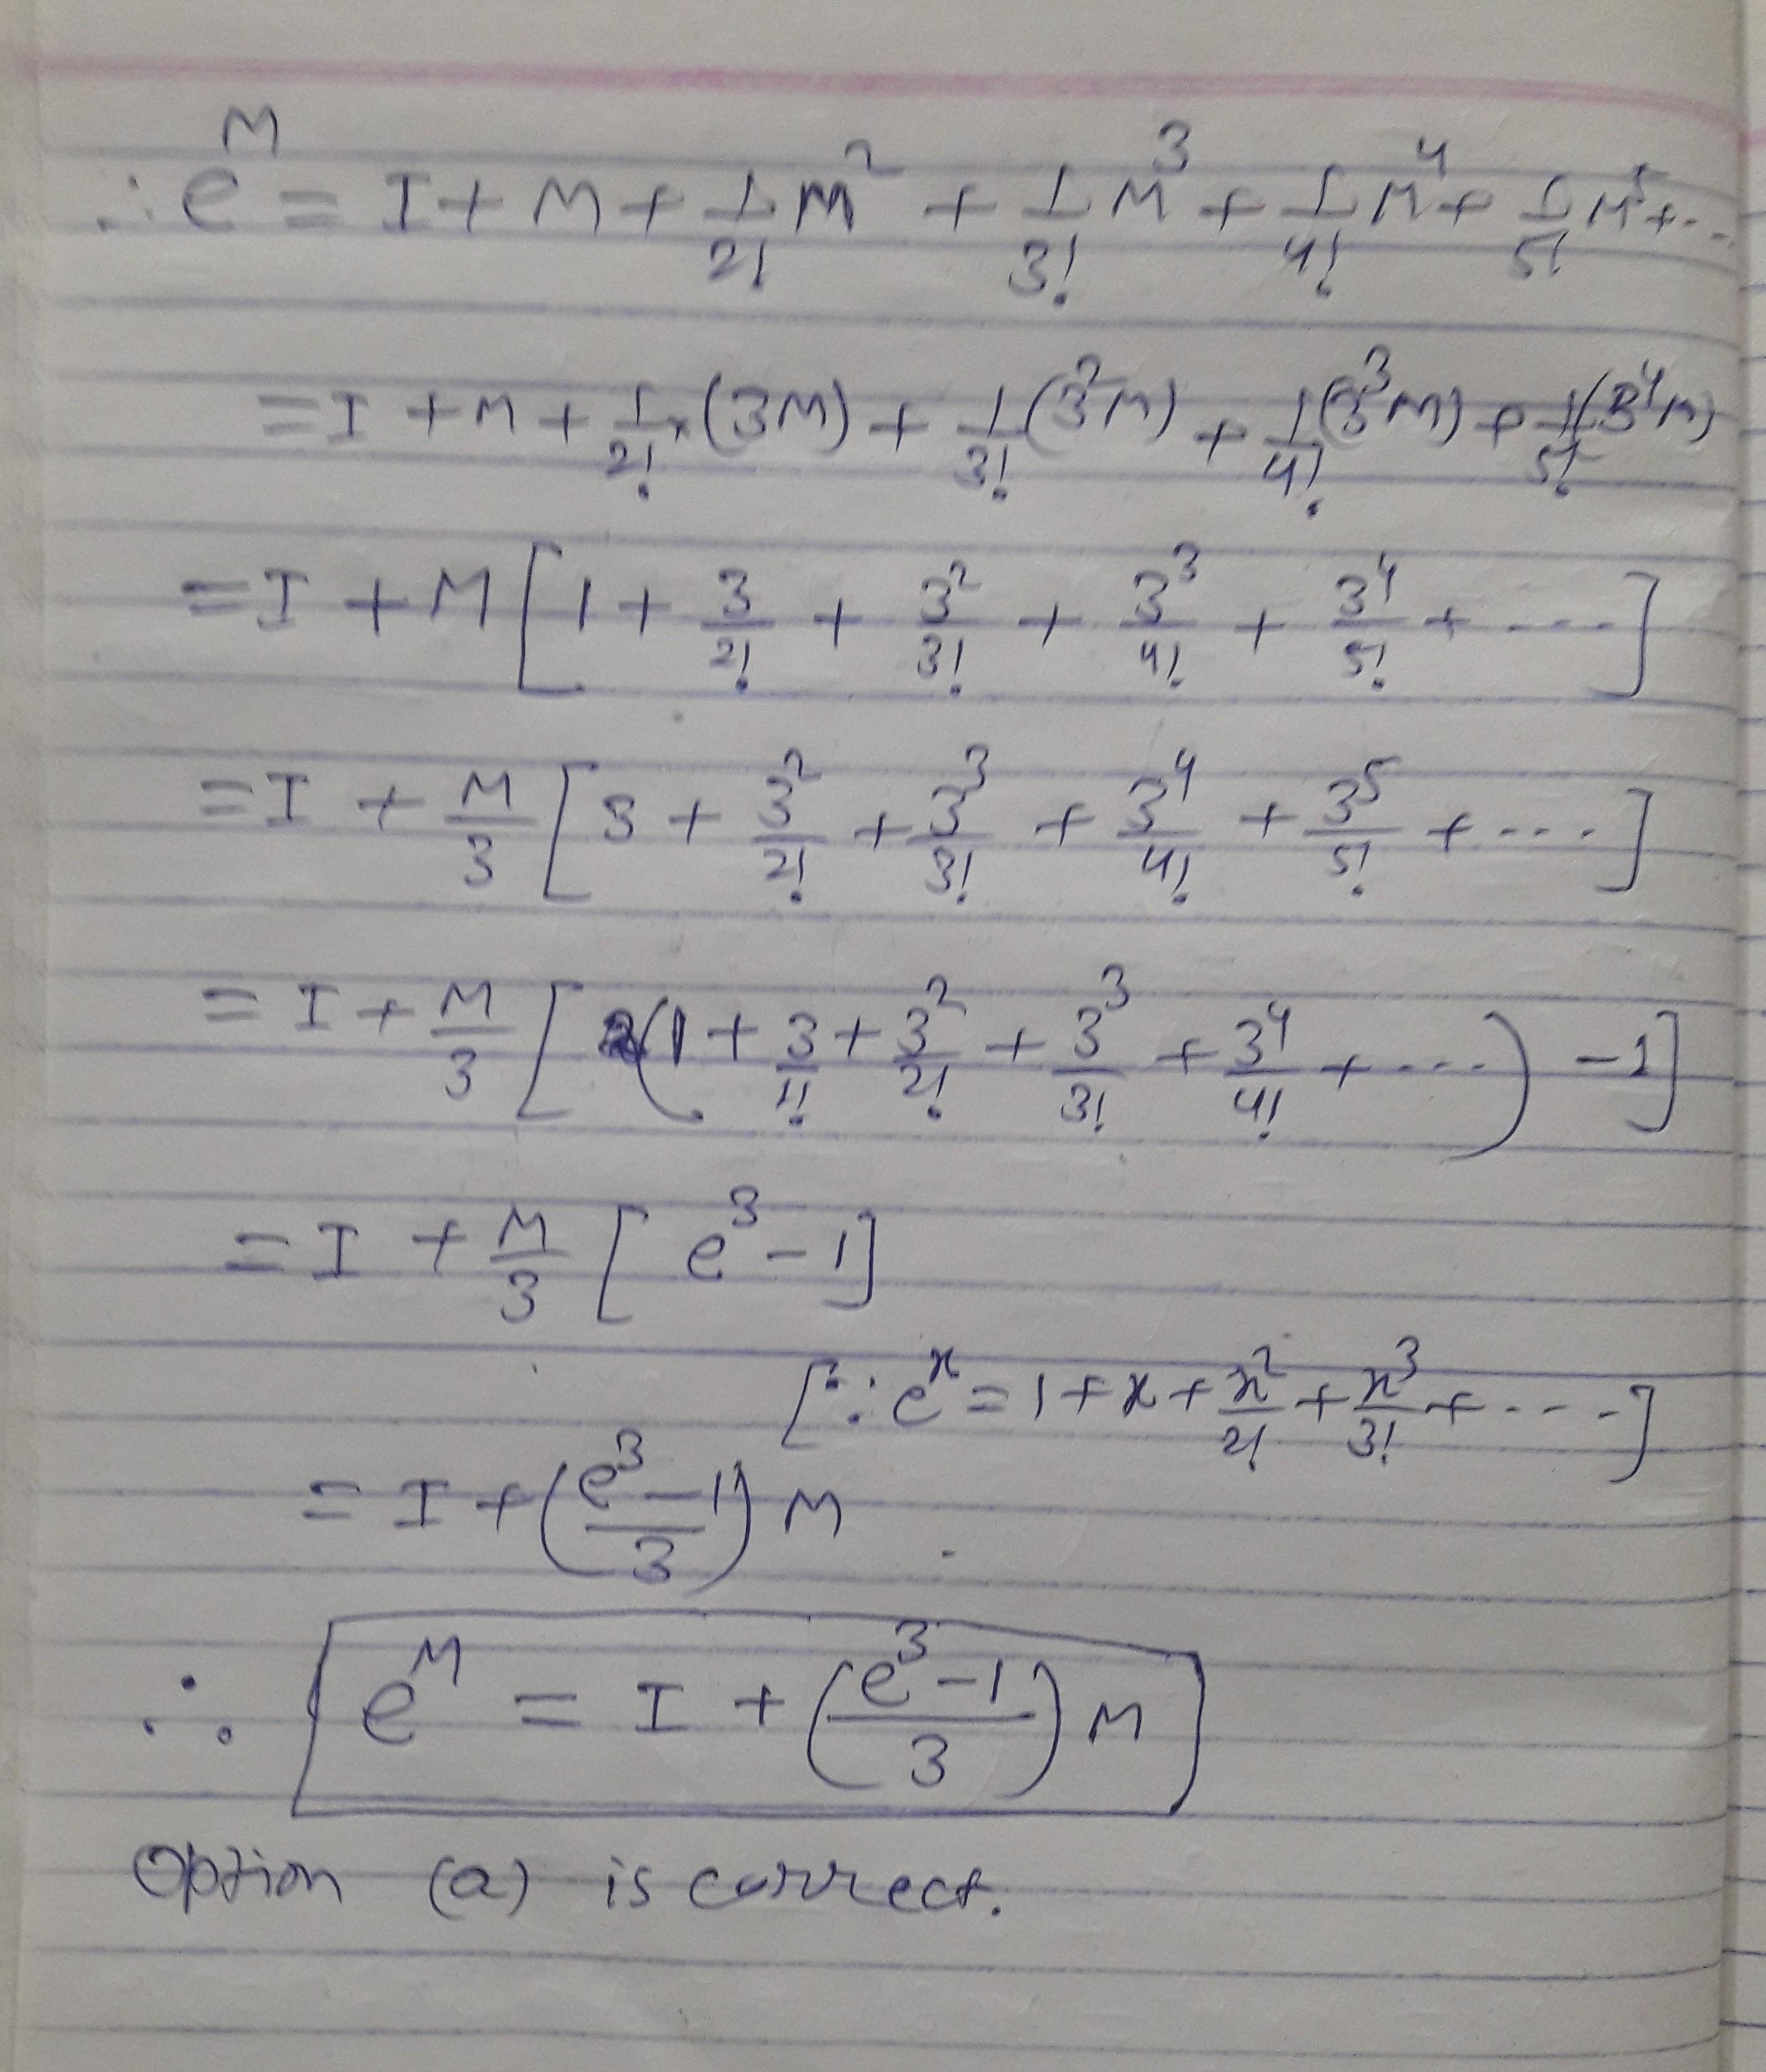 ∴ e^M = I + M + 1/2! M^2 + 1/3! M^3 + 1/4! M^4 + 1/5! M^5 + ...
= I + M + 1/2! × (3M) + 1/3! (3^2 M) + 1/4! (3^3 M) + 1/5! (3^4 M)
= I + M [ 1 + 3/2! + 3^2/3! + 3^3/4! + 3^4/5! + ---- ]
= I + M/3 [ 3 + 3^2/2! + 3^3/3! + 3^4/4! + 3^5/5! + ---- ]
= I + M/3 [ (1 + 3/1! + 3^2/2! + 3^3/3! + 3^4/4! + ----) - 1 ]
= I + M/3 [ e^3 - 1 ]
[∵ e^x = 1 + x + x^2/2! + x^3/3! + ---- ]
= I + (e^3 - 1 / 3) M
∴ e^M = I + (e^3 - 1 / 3) M
Option (a) is correct.